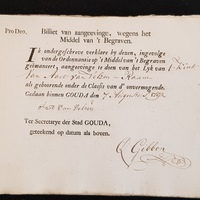 Pro Deo.
Billiet van aangeevinge, wegens het
Middel van 't Begraven.
Ik ondergeschreve verklare by dezen, ingevolge
van de Ordonnantie op 't Middel van 't Begraven
geëmaneert, aangeevinge te doen van het Lyk van 't Kint
Van
als gehoorende onder de Classis van d' onvermogende.
Gedaan binnen GOUDA den 7 Augustus
Ter Secretarye der Stad GOUDA,
geteekend op datum als boven.